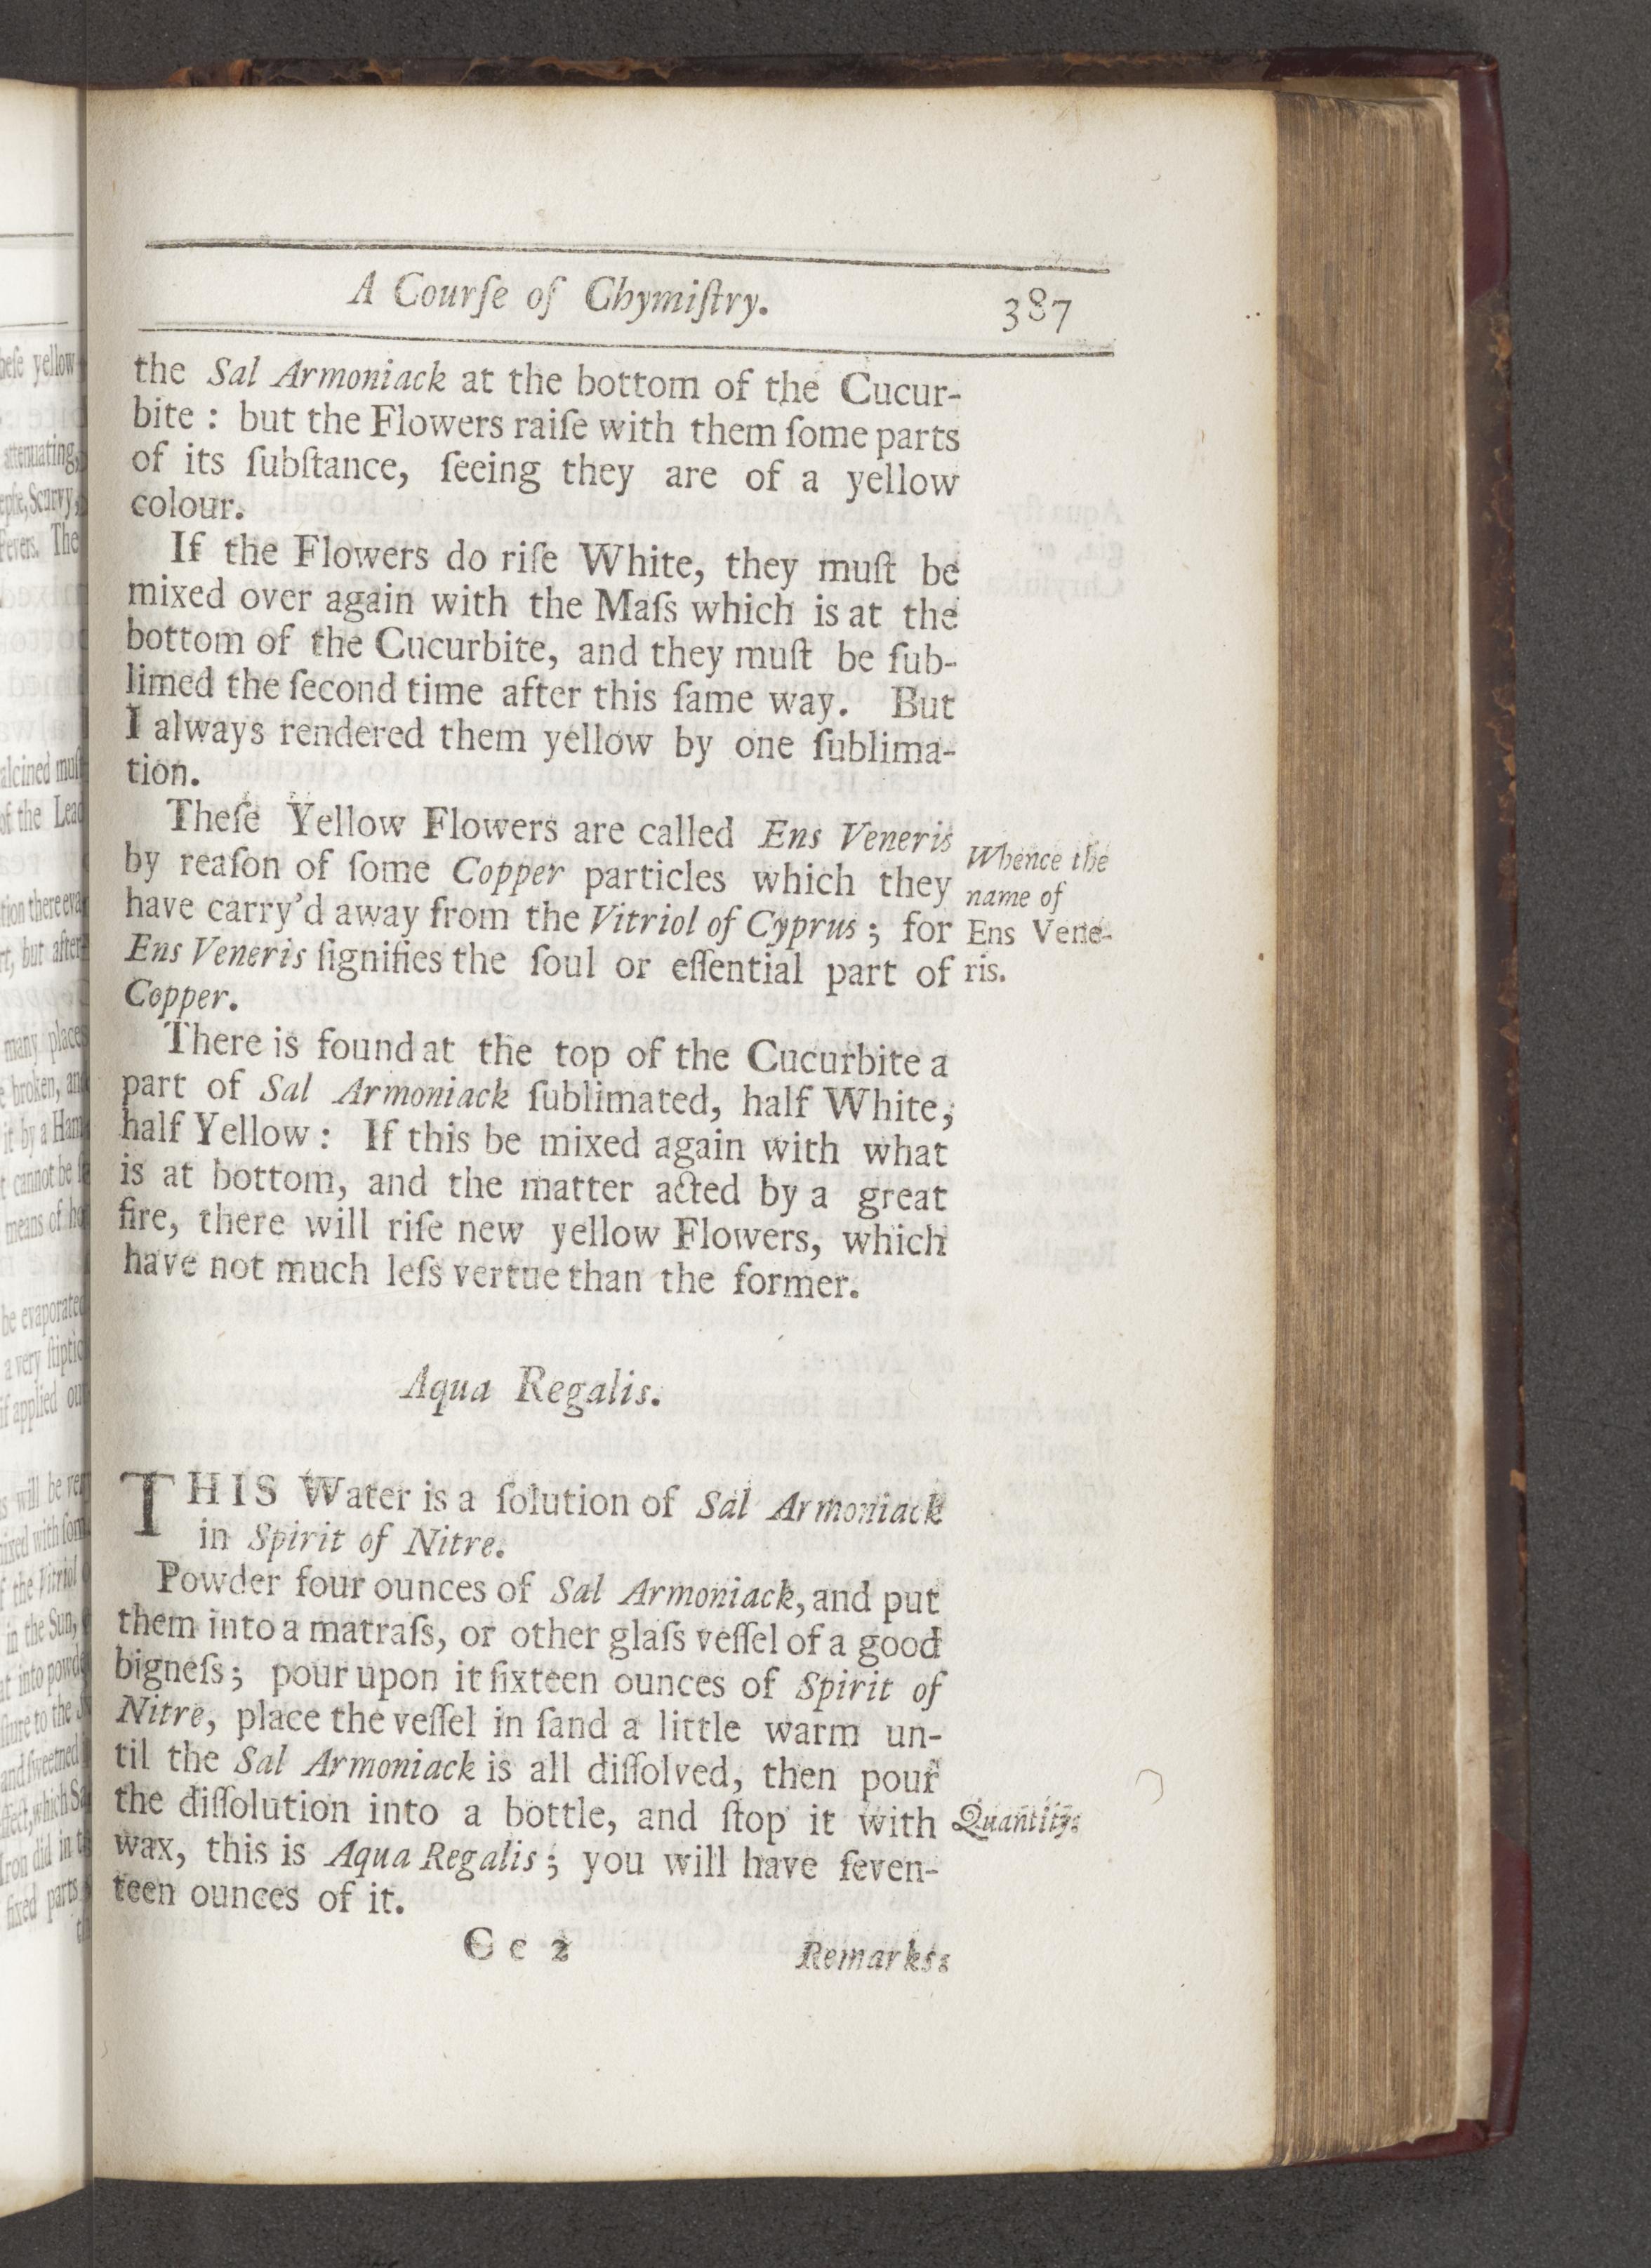 A Courſe of Chymiſtry.
387
the Sal Armoniack at the bottom of the Cucur-
bite : but the Flowers raiſe with them ſome parts
of its ſubſtance, ſeeing they are of a yellow
colour.
If the Flowers do riſe White, they muſt be
mixed over again with the Maſs which is at the
bottom of the Cucurbite, and they muſt be ſub-
limed the ſecond time after this ſame way. But
I always rendered them yellow by one ſublima-
tion.
Theſe Yellow Flowers are called Ens Veneris
by reaſon of ſome Copper particles which they
have carry'd away from the Vitriol of Cyprus ; for
Ens Veneris ſignifies the ſoul or eſſential part of
Copper.
Whence the
name of
Ens Vene-
ris.
There is found at the top of the Cucurbite a
part of Sal Armoniack ſublimated, half White,
half Yellow : If this be mixed again with what
is at bottom, and the matter acted by a great
fire, there will riſe new yellow Flowers, which
have not much leſs vertue than the former.
Aqua Regalis.
THIS Water is a ſolution of Sal Armoniack
in Spirit of Nitre.
Powder four ounces of Sal Armoniack, and put
them into a matraſs, or other glaſs veſſel of a good
bigneſs ; pour upon it ſixteen ounces of Spirit of
Nitre, place the veſſel in ſand a little warm un-
til the Sal Armoniack is all diſſolved, then pour
the diſſolution into a bottle, and ſtop it with
wax, this is Aqua Regalis ; you will have ſeven-
teen ounces of it.
Quantity.
C c 2
Remarks.
yellow
attenuating,
Scurvy,
Fevers. The
of the Lead
but after
many places
broken,
by a Ham
cannot be
means of
be evaporated
a very ſtiptic
if applied
will be
the Vitriol
in the Sun,
into
to the
and ſweetned
which
Iron did in
fixed parts